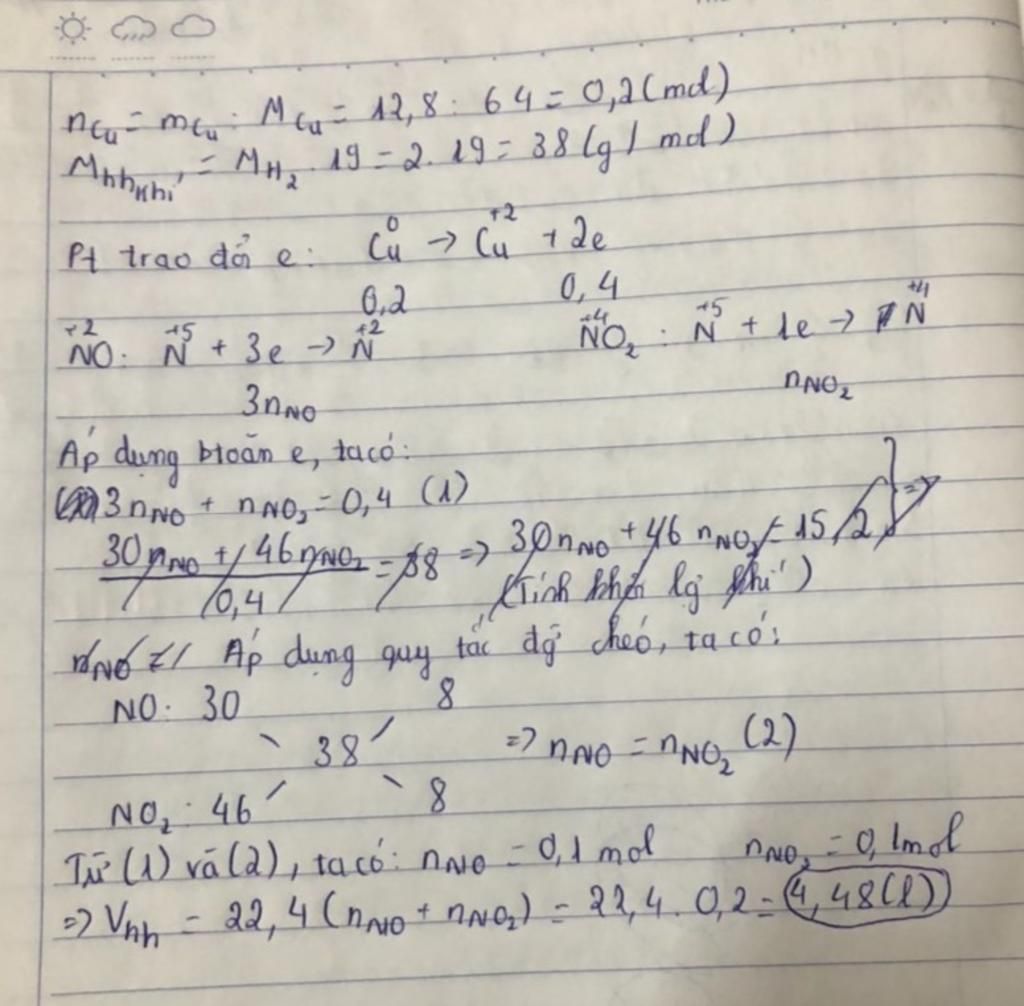 nCu = mCu : MCu = 12,8 : 64 = 0,2 (mol)
Mhhkhí = MH₂ . 19 = 2 . 19 = 38 (g/mol)
Pt trao đổi e: Cu⁰ → Cu⁺² + 2e
0,2 0,4
N⁺²O: N⁺⁵ + 3e → N⁺² N⁺⁴O₂: N⁺⁵ + 1e → N⁺⁴
3nNO nNO₂
Áp dụng btoàn e, ta có:
3nNO + nNO₂ = 0,4 (1)
30nNO + 46nNO₂ / 0,4 = 38 => 30nNO + 46nNO₂ = 15,2 } =>
(Tính khối lg khí)
nNO = Áp dụng quy tắc đg chéo, ta có:
NO: 30 8
38 => nNO = nNO₂ (2)
NO₂: 46 8
Từ (1) và (2), ta có: nNO = 0,1 mol nNO₂ = 0,1mol
=> Vhh = 22,4 (nNO + nNO₂) = 22,4 . 0,2 = 4,48 (l)